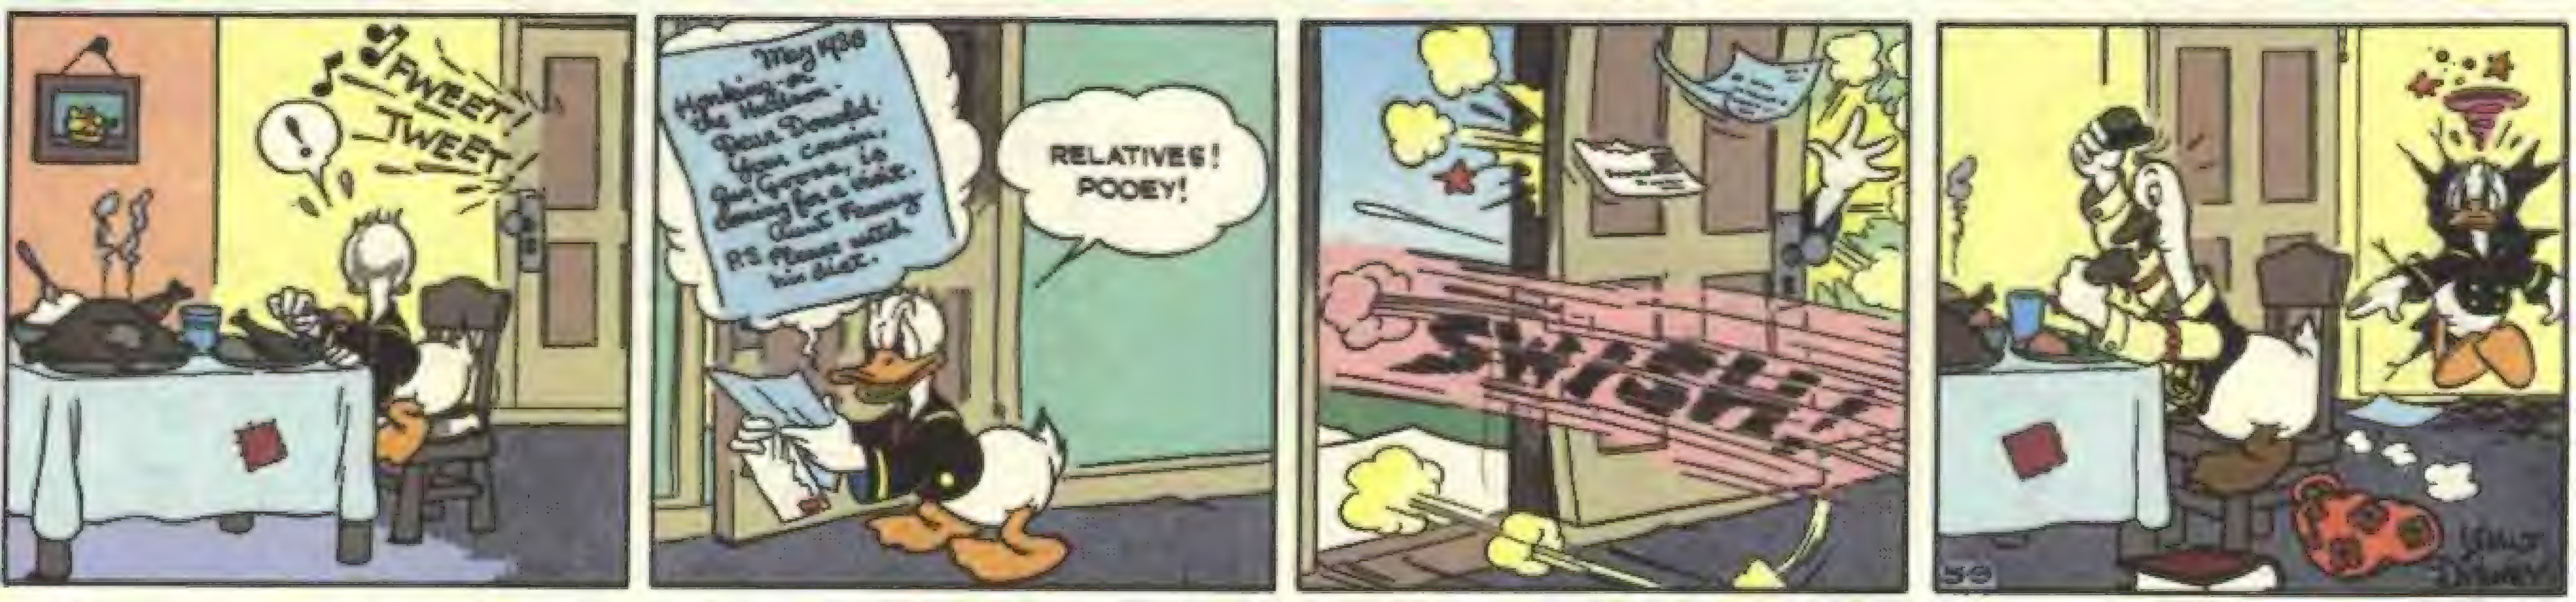 FWEET!
TWEET!
!
May 1938
Honking-on
the Hudson.
Dear Donald.
Your cousin,
Gus Goose, is
coming for a visit.
Aunt Fanny
P.S. Please watch
his diet.
RELATIVES!
POOEY!
SWISH!
5-9
WALT
DISNEY